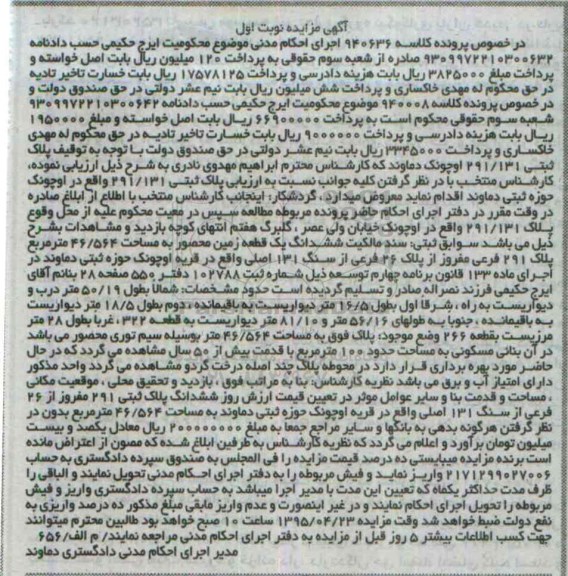 آگهی مزایده نوبت اول
در خصوص پرونده کلاسه ۹۴۰۶۳۶ اجرای احکام مدنی موضوع محکومیت ایرج حکیمی حسب دادنامه
۹۳۰۹۹۷۲۲۱۰۳۰۰۶۳۲ صادره از شعبه سوم حقوقی به پرداخت ۱۲۰ میلیون ریال بابت اصل خواسته و
پرداخت مبلغ ۳۸۲۵۰۰۰ ریال بابت هزینه دادرسی و پرداخت ۱۷۵۷۸۱۲۵ ریال بابت خسارت تاخیر تادیه
در حق محکوم له مهدی خاکساری و پرداخت شش میلیون ریال بابت نیم عشر دولتی در حق صندوق دولت و
در خصوص پرونده کلاسه ۹۴۰۰۰۸ موضوع محکومیت ایرج حکیمی حسب دادنامه ۹۳۰۹۹۷۲۲۱۰۳۰۰۶۴۲
شعبه سوم حقوقی محکوم است به پرداخت ۶۶۹۰۰۰۰۰ ریال بابت اصل خواسته و مبلغ ۱۹۵۰۰۰۰
ریال بابت هزینه دادرسی و پرداخت ۹۰۰۰۰۰۰ ریال بابت خسارت تاخیر تادیه در حق محکوم له مهدی
خاکساری و پرداخت ۳۳۴۵۰۰۰ ریال بابت نیم عشر دولتی در حق صندوق دولت با توجه به توقیف پلاک
ثبتی ۲۹۱/۱۳۱ اوچونک دماوند که کارشناس محترم ابراهیم مهدوی نادری به شرح ذیل ارزیابی نموده،
کارشناس منتخب با در نظر گرفتن کلیه جوانب نسبت به ارزیابی پلاک ثبتی ۲۹۱/۱۳۱ واقع در اوچونک
حوزه ثبتی دماوند اقدام نماید معروض میدارد، گردشکار: اینجانب کارشناس منتخب با اطلاع از ابلاغ صادره
در وقت مقرر در دفتر اجرای احکام حاضر پرونده مربوطه مطالعه سپس در معیت محکوم علیه از محل وقوع
پلاک ۲۹۱/۱۳۱ واقع در اوچونک خیابان ولی عصر، گلبرگ هفتم انتهای کوچه بازدید و مشاهدات بشرح
ذیل می باشد سوابق ثبتی: سند مالکیت ششدانگ یک قطعه زمین محصور به مساحت ۴۶/۵۶۴ مترمربع
پلاک ۲۹۱ فرعی مفروز از پلاک ۲۶ فرعی از سنگ ۱۳۱ اصلی واقع در قریه اوچونک حوزه ثبتی دماوند در
اجرای ماده ۱۳۳ قانون برنامه چهارم توسعه ذیل شماره ثبت ۱۰۲۷۸۸ دفتر ۵۵۰ صفحه ۲۸ بنام آقای
ایرج حکیمی فرزند نصراله صادر و تسلیم گردیده است حدود مشخصات: شمالا بطول ۵۰/۱۹ متر درب و
دیواریست به راه، شرقا اول بطول ۱۶/۵ متر دیواریست به باقیمانده، دوم بطول ۱۸/۵ متر دیواریست
به باقیمانده، جنوبا به طولهای ۵۶/۱۶ متر و ۸۱/۱۰ متر دیواریست به قطعه ۳۲۲، غربا بطول ۲۸ متر
مرزیست بقطعه ۲۶۶ وضع موجود: پلاک فوق به مساحت ۴۶/۵۶۴ متر بوسیله سیم توری محصور می باشد
در آن بنائی مسکونی به مساحت حدود ۱۰۰ مترمربع با قدمت بیش از ۵۰ سال مشاهده می گردد که در حال
حاضر مورد بهره برداری قرار دارد در محوطه پلاک چند اصله درخت گردو مشاهده می گردد واحد مذکور
دارای امتیاز آب و برق می باشد نظریه کارشناس: بنا به مراتب فوق، بازدید و تحقیق محلی، موقعیت مکانی
، مساحت و قدمت بنا و سایر عوامل موثر در تعیین قیمت ارزش روز ششدانگ پلاک ثبتی ۲۹۱ مفروز از ۲۶
فرعی از سنگ ۱۳۱ اصلی واقع در قریه اوچونک حوزه ثبتی دماوند به مساحت ۴۶/۵۶۴ مترمربع بدون در
نظر گرفتن هرگونه بدهی به بانکها و سایر مراجع جمعا به مبلغ ۱۲۰۰۰۰۰۰۰۰ ریال معادل یکصد و بیست
میلیون تومان برآورد و اعلام می گردد که نظریه کارشناس به طرفین ابلاغ شده که مصون از اعتراض مانده
است برنده مزایده میبایستی ده درصد قیمت مزایده را فی المجلس به صندوق سپرده دادگستری به حساب
۲۱۷۱۲۹۹۰۲۷۰۰۶ واریز نماید و فیش مربوطه را به دفتر اجرای احکام مدنی تحویل نمایند و الباقی را
ظرف مدت حداکثر یکماه که تعیین این مدت با مدیر اجرا میباشد به حساب سپرده دادگستری واریز و فیش
مربوطه را تحویل اجرای احکام نمایند و در غیر اینصورت و عدم واریز مابقی مبلغ مذکور ده درصد واریزی به
نفع دولت ضبط خواهد شد وقت مزایده ۱۳۹۵/۰۴/۲۳ ساعت ۱۰ صبح خواهد بود طالبین محترم میتوانند
جهت کسب اطلاعات بیشتر ۵ روز قبل از مزایده به دفتر اجرای احکام مدنی مراجعه نمایند/ م الف/۶۵۶
مدیر اجرای احکام مدنی دادگستری دماوند